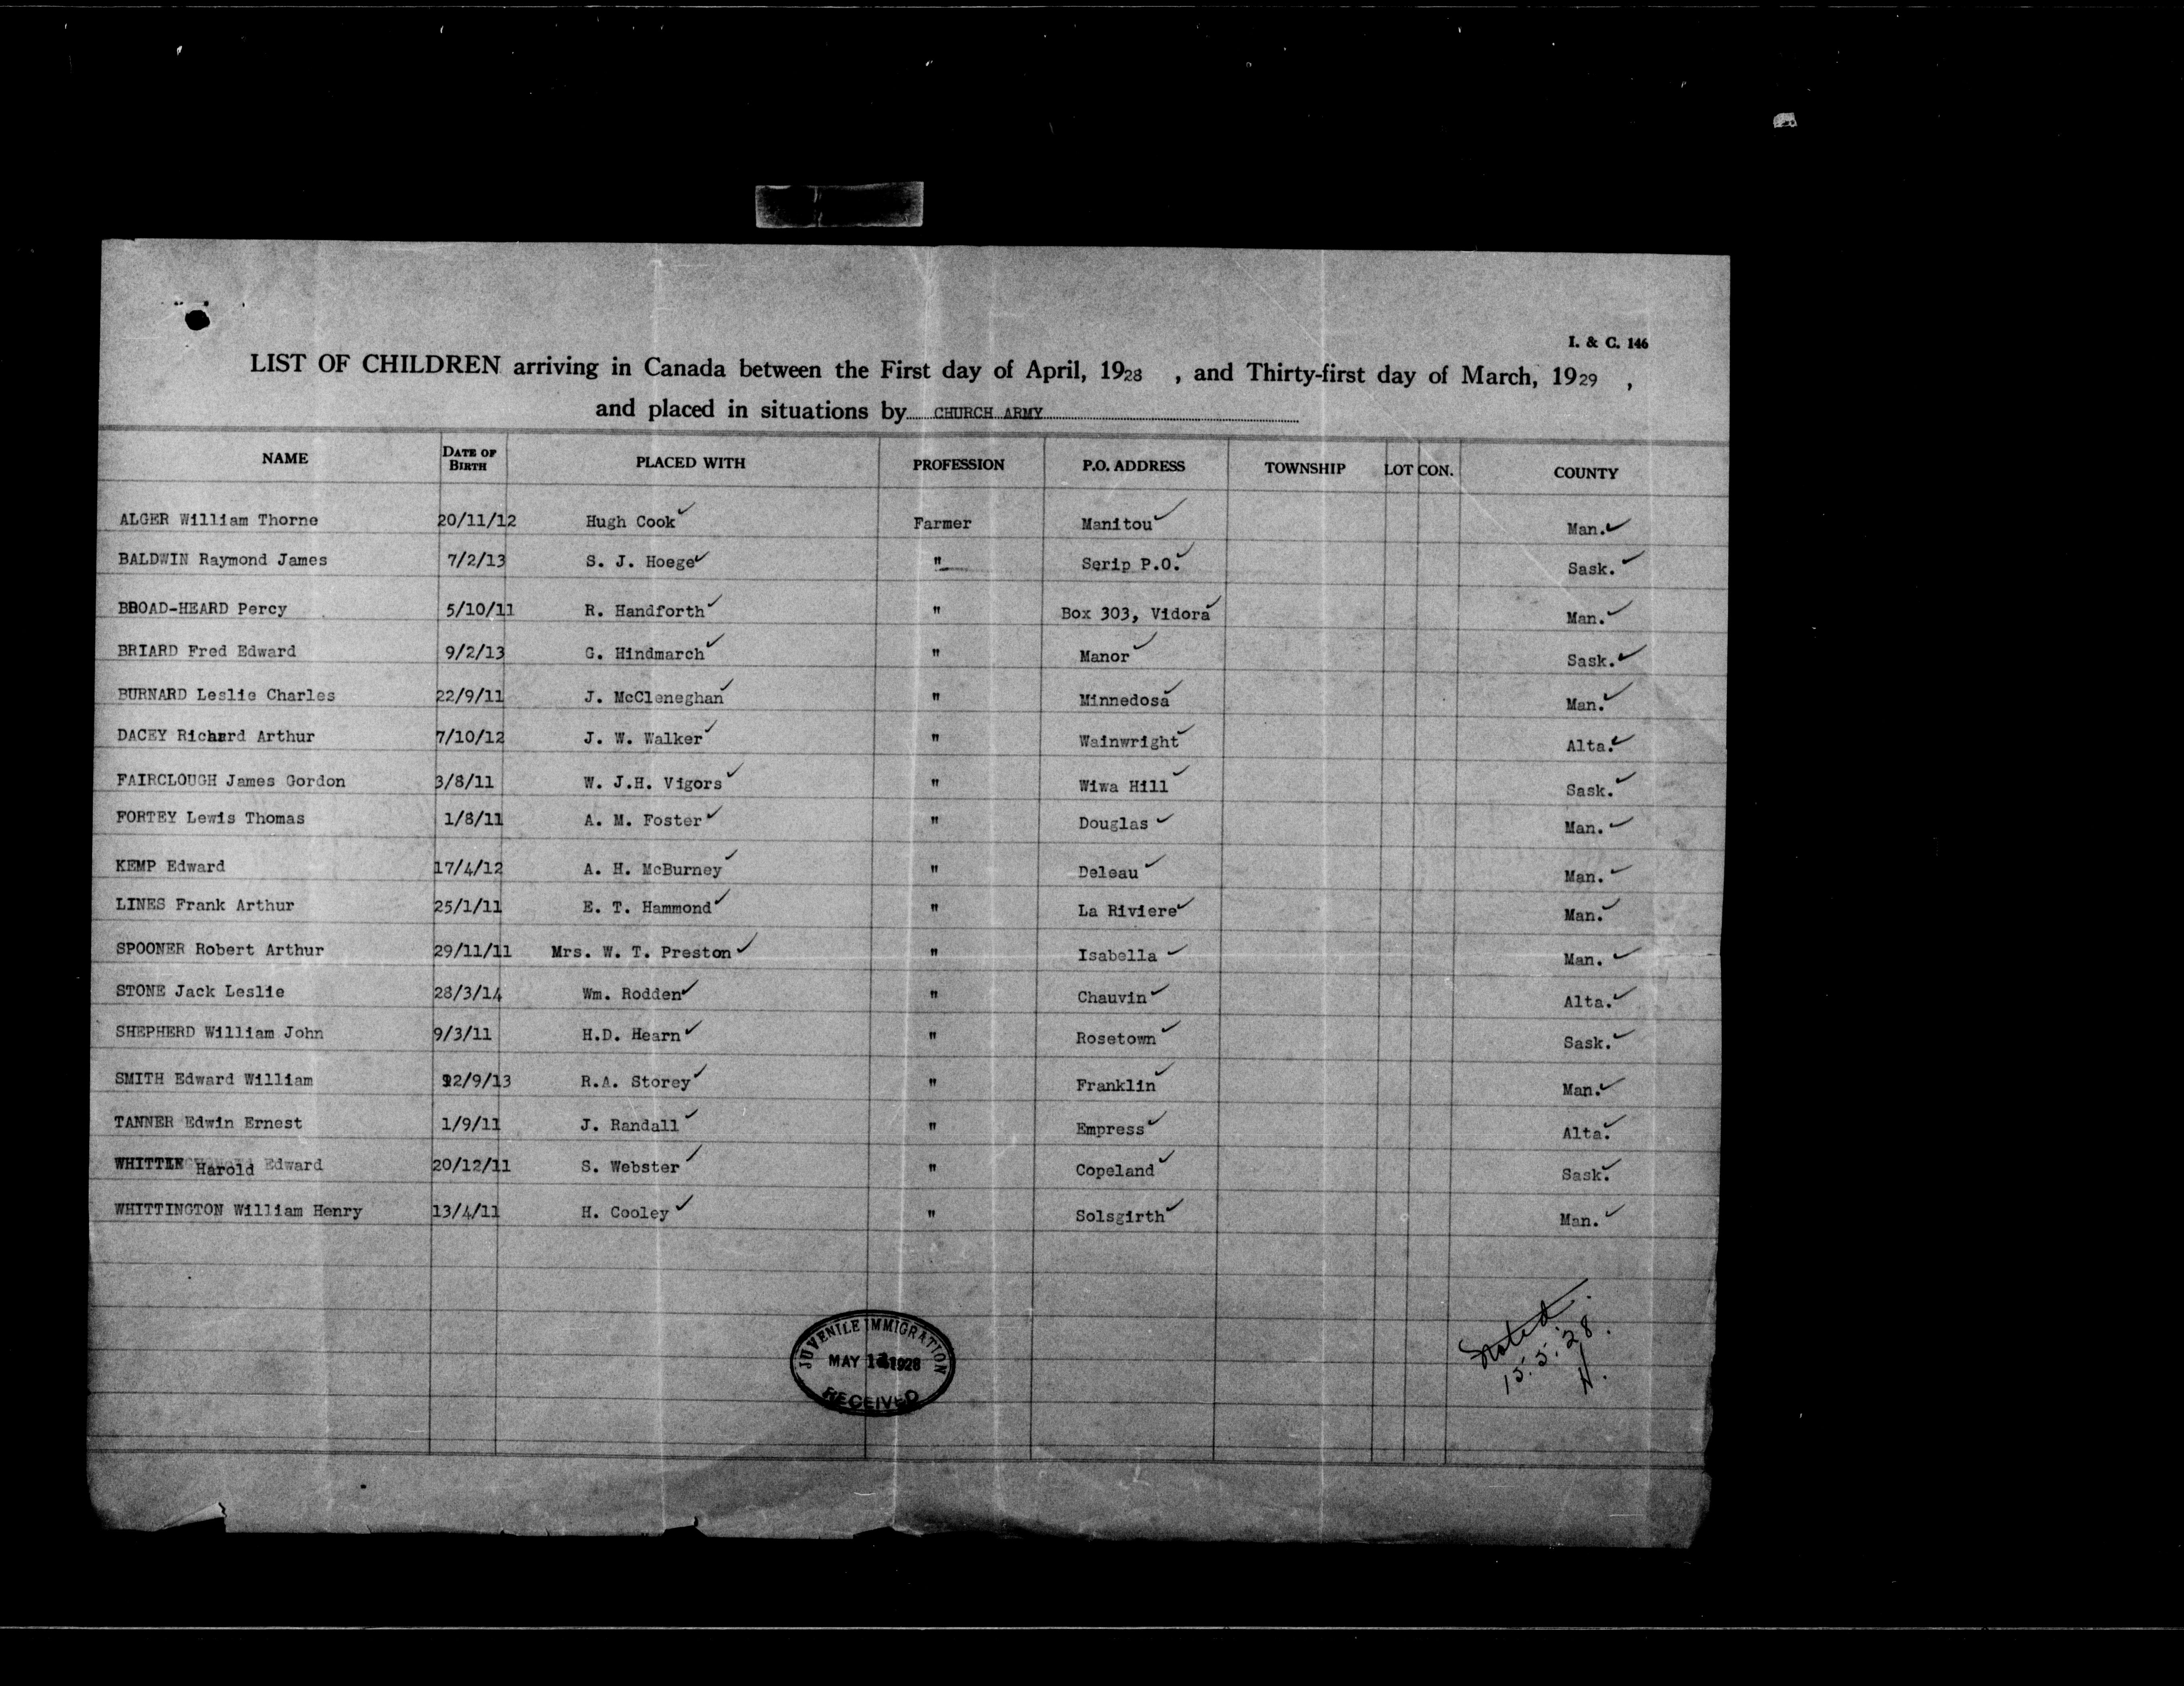 I. & C. 146
LIST OF CHILDREN arriving in Canada between the First day of April, 1928 , and Thirty-first day of March, 1929 ,
and placed in situations by CHURCH ARMY
NAME DATE OF BIRTH PLACED WITH PROFESSION P.O. ADDRESS TOWNSHIP LOT CON. COUNTY
ALGER William Thorne 20/11/12 Hugh Cook✓ Farmer Manitou✓ Man.✓
BALDWIN Raymond James 7/2/13 S. J. Hoege✓ " Serip P.O.✓ Sask.✓
BROAD-HEARD Percy 5/10/11 R. Handforth✓ " Box 303, Vidora✓ Man.✓
BRIARD Fred Edward 9/2/13 G. Hindmarch✓ " Manor✓ Sask.✓
BURNARD Leslie Charles 22/9/11 J. McCleneghan✓ " Minnedosa✓ Man.✓
DACEY Richard Arthur 7/10/12 J. W. Walker✓ " Wainwright✓ Alta.✓
FAIRCLOUGH James Gordon 3/8/11 W. J.H. Vigors✓ " Wiwa Hill✓ Sask.✓
FORTEY Lewis Thomas 1/8/11 A. M. Foster✓ " Douglas✓ Man.✓
KEMP Edward 17/4/12 A. H. McBurney✓ " Deleau✓ Man.✓
LINES Frank Arthur 25/1/11 E. T. Hammond✓ " La Riviere✓ Man.✓
SPOONER Robert Arthur 29/11/11 Mrs. W. T. Preston✓ " Isabella✓ Man.✓
STONE Jack Leslie 28/3/14 Wm. Rodden✓ " Chauvin✓ Alta.✓
SHEPHERD William John 9/3/11 H.D. Hearn✓ " Rosetown✓ Sask.✓
SMITH Edward William /9/13 R.A. Storey✓ " Franklin✓ Man.✓
TANNER Edwin Ernest 1/9/11 J. Randall✓ " Empress✓ Alta.✓
WHITTLE Harold Edward 20/12/11 S. Webster✓ " Copeland✓ Sask.✓
WHITTINGTON William Henry 13/4/11 H. Cooley✓ " Solsgirth✓ Man.✓
JUVENILE IMMIGRATION
MAY 1928
RECEIVED
Noted.
15.5.28.